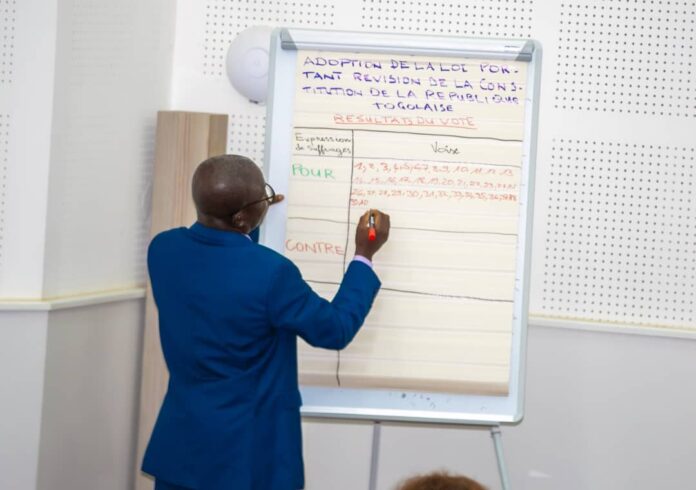 ADOPTION DE LA LOI POR-
TANT REVISION DE LA CONS-
TITUTION DE LA REPUBLIQUE
TOGOLAISE
RESULTATS DU VOTE
Expression
de suffrages
Voix
POUR
1, 2, 3, 4, 5, 6, 7, 8, 9, 10, 11, 12, 13
14, 15, 16, 17, 18, 19, 20, 21, 22, 23, 24, 25
26, 27, 28, 29, 30, 31, 32, 33, 34, 35, 36, 37, 38
39, 40
CONTRE